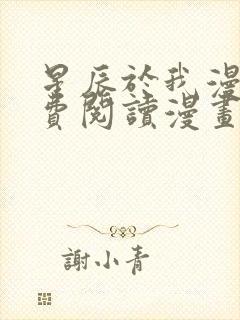 星辰於我漫
費閱讀漫畫
謝小青